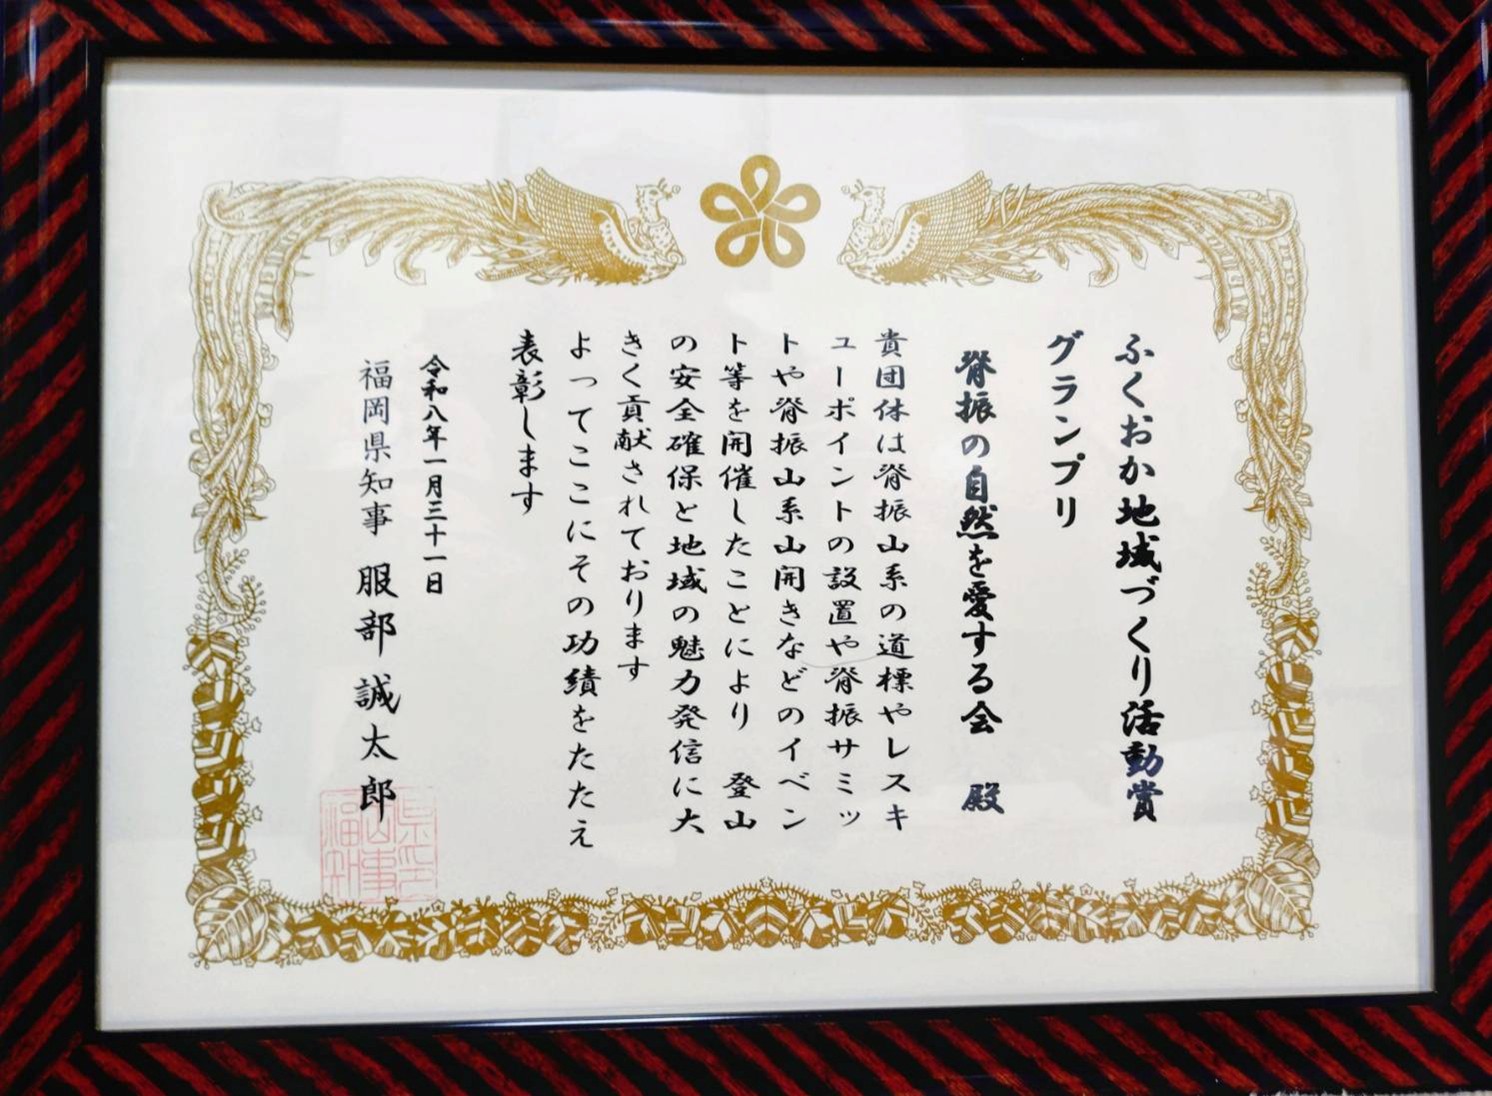 ふくおか地域づくり活動賞
グランプリ
脊振の自然を愛する会 殿
貴団体は脊振山系の道標やレスキ
ューポイントの設置や脊振サミッ
トや脊振山系山開きなどのイベン
ト等を開催したことにより 登山
の安全確保と地域の魅力発信に大
きく貢献されております
よってここにその功績をたたえ
表彰します
令和八年一月三十一日
福岡県知事 服部誠太郎